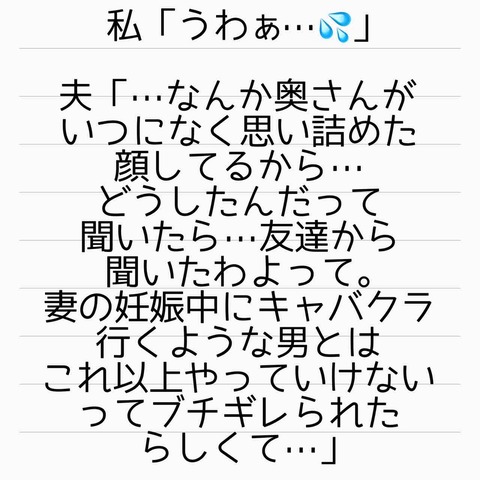 私「うわぁ…💦」
夫「…なんか奥さんが
いつになく思い詰めた
顔してるから…
どうしたんだって
聞いたら…友達から
聞いたわよって。
妻の妊娠中にキャバクラ
行くような男とは
これ以上やっていけない
ってブチギレられた
らしくて…」